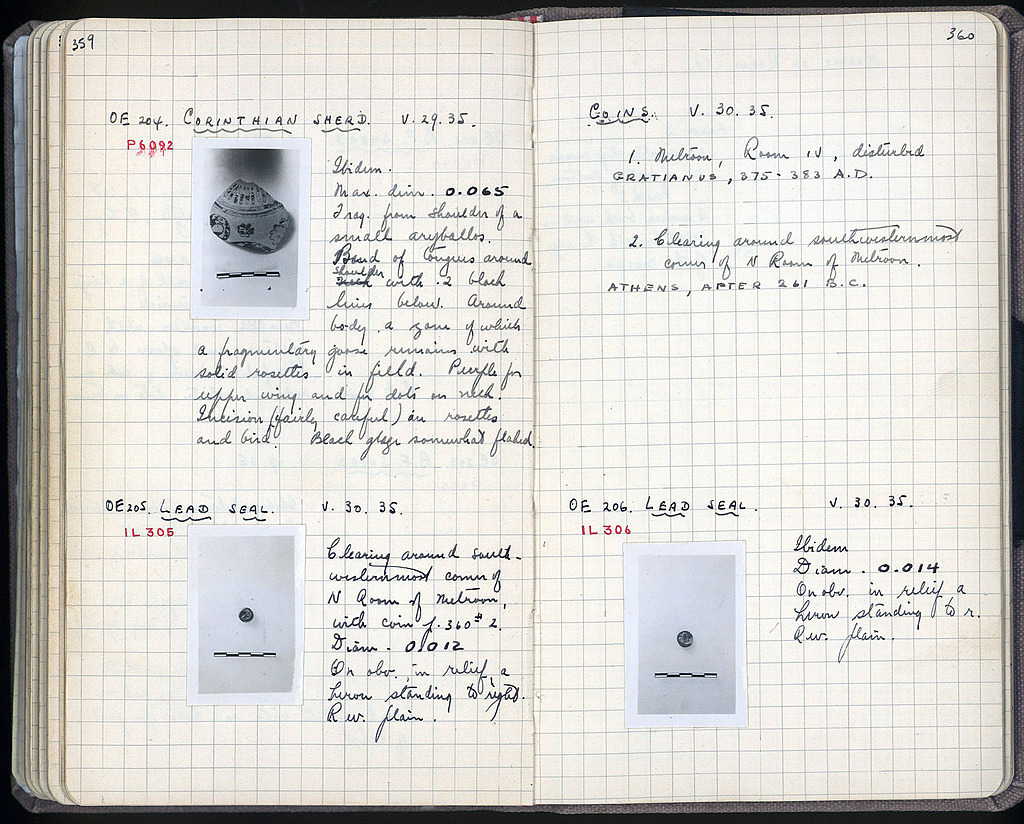 359
OE 204. CORINTHIAN SHERD. V. 29. 35.
P 6092
Ibidem.
Max. dim. 0.065
Frag. from shoulder of a
small aryballos.
Band of tongues around
shoulder with 2 black
lines below. Around
body a zone of which
a fragmentary goose remains with
solid rosettes in field. Purple for
upper wing and for dots on neck.
Incision (fairly careful) in rosettes
and bird. Black glaze somewhat flaked.
OE 205. LEAD SEAL. V. 30. 35.
IL 305
Clearing around south-
westernmost corner of
N Room of Metroon,
with coin p. 360 # 2.
Diam. 0.012
On obv., in relief, a
heron standing to right.
Rev. plain.
360
COINS. V. 30. 35.
1. Metroon, Room IV, disturbed
GRATIANUS, 375-383 A.D.
2. Clearing around southwesternmost
corner of N Room of Metroon.
ATHENS, AFTER 261 B.C.
OE 206. LEAD SEAL. V. 30. 35.
IL 306
Ibidem
Diam. 0.014
On obv. in relief a
heron standing to r.
Rev. plain.